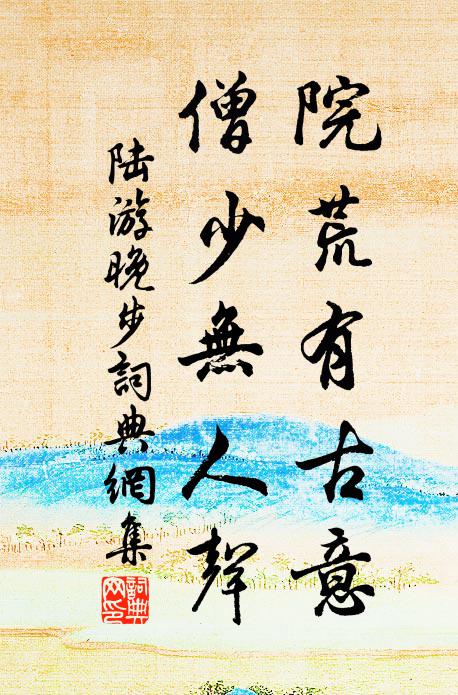 院荒有古意
僧少無人聲
陸游晚步詞典網集